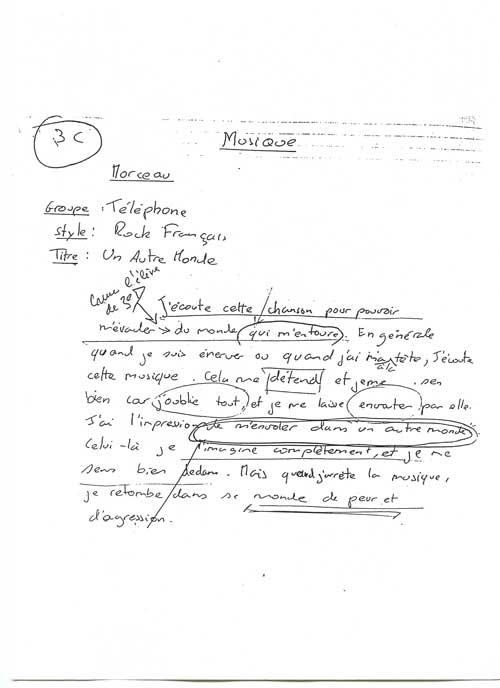 3C
Musique
Morceau
Groupe : Téléphone
Style : Rock Français
Titre : Un Autre Monde
l'élève
de 3e
J'écoute cette chanson pour pouvoir
m'évader du monde qui m'entoure. En générale
quand je suis énerver ou quand j'ai mal à la tête, J'écoute
cette musique. Cela me détend et je me sen
bien car j'oublie tout, et je me laisse envouter par elle.
J'ai l'impression de m'envoler dans un autre monde
Celui-là je l'imagine complètement, et je me
sens bien dedans. Mais quand j'arrête la musique,
je retombe dans se monde de peur et
d'agression.